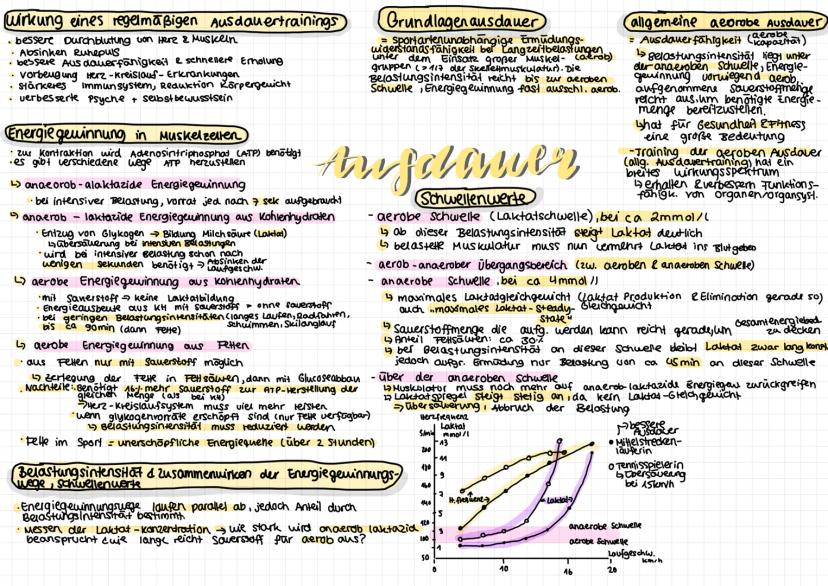 Wirkung eines regelmäßigen Ausdauertrainings
· bessere Durchblutung von Herz & Muskeln
· Absinken Ruhepuls
· bessere Ausdauerfähigkeit & schnellere Erholung
· Vorbeugung Herz-Kreislauf-Erkrankungen
· stärkeres Immunsystem, Reduktion Körpergewicht
· verbesserte Psyche + Selbstbewusstsein
Energiegewinnung in Muskelzellen
· zur Kontraktion wird Adenosintriphosphat (ATP) benötigt
· es gibt verschiedene Wege ATP herzustellen
↳ anaerob-alaktazide Energiegewinnung
· bei intensiver Belastung, Vorrat jed. nach 7 sek aufgebraucht
↳ anaerob - laktazide Energiegewinnung aus Kohlenhydraten
· Entzug von Glykogen → Bildung Milchsäure (Laktat)
↳ Übersäuerung bei intensiven Belastungen
· wird bei intensiver Belastung schon nach
wenigen Sekunden benötigt → Absinken der
Laufgeschw.
↳ aerobe Energiegewinnung aus Kohlenhydraten
· mit Sauerstoff → keine Laktatbildung
· Energieausbeute aus KH mit Sauerstoff > ohne Sauerstoff
· bei geringen Belastungsintensitäten (langes Laufen, Radfahren,
bis ca 90min (dann Fette) Schwimmen, Skilanglauf
↳ aerobe Energiegewinnung aus Fetten
· aus Fetten nur mit Sauerstoff möglich
↳ Zerlegung der Fette in Fettsäuren, dann mit Glucoseabbau
Nachteile: Benötigt mehr Sauerstoff zur ATP-Herstellung der
gleichen Menge (als bei KH)
→ Herz-Kreislaufsystem muss viel mehr leisten
· wenn Glykogenvorräte erschöpft sind (nur Fette verfügbar)
↳ Belastungsintensität muss reduziert werden
· Fette im Sport = unerschöpfliche Energiequelle (über 2 Stunden)
Belastungsintensität & Zusammenwirken der Energiegewinnungs-
wege, Schwellenwerte
· Energiegewinnungswege laufen parallel ab, jedoch Anteil durch
Belastungsintensität bestimmt
· Messen der Laktat-Konzentration → wie stark wird anaerob laktazid
beansprucht & wie lange reicht Sauerstoff für aerob aus?
Grundlagenausdauer
= sportartenunabhängige Ermüdungs-
widerstandsfähigkeit bei Langzeitbelastungen
unter dem Einsatz großer Muskel- (aerob)
gruppen (>1/7 der Skelettmuskulatur). Die
Belastungsintensität reicht bis zur aeroben
Schwelle, Energiegewinnung fast ausschl. aerob.
allgemeine aeorobe Ausdauer
= Ausdauerfähigkeit (aerobe
Kapazität)
↳ Belastungsintensität liegt unter
der anaeroben Schwelle, Energie-
gewinnung vorwiegend aerob,
aufgenommene Sauerstoffmenge
reicht aus, um benötigte Energie-
menge bereitzustellen.
↳ hat für Gesundheit & Fitness
eine große Bedeutung
-Training der aeroben Ausdauer
(allg. Ausdauertraining) hat ein
breites Wirkungsspektrum
↳ erhalten & verbessern Funktions-
fähigk. von Organen/Organsyst.
Ausdauer
Schwellenwerte
- aerobe Schwelle (Laktatschwelle), bei ca 2mmol/l
↳ ab dieser Belastungsintensität steigt Laktat deutlich
↳ belastete Muskulatur muss nun vermehrt Laktat ins Blut geben
- aerob-anaerober Übergangsbereich (zw. aeroben & anaeroben Schwelle)
- anaerobe Schwelle, bei ca 4mmol/l
↳ maximales Laktatgleichgewicht (Laktat Produktion & Elimination gerade so)
auch "maximales Laktat-Steady- Gleichgewicht
State"
↳ Sauerstoffmenge die aufg. werden kann reicht gerade, um Gesamtenergiebed.
zu decken
↳ Anteil Fettsäuren: ca 30%
↳ bei Belastungsintensität an dieser Schwelle bleibt Laktat zwar lang konst.
jedoch aufgr. Ermüdung nur Belastung von ca 45min an dieser Schwelle
- über der anaeroben Schwelle
↳ Muskulatur muss noch mehr auf anaerob-laktazide Energiegew. zurückgreifen
↳ Laktatspiegel steigt stetig an, da kein Laktat-Gleichgewicht
→ Übersäuerung, Abbruch der Belastung
Herzfrequenz
Laktat
mmol/l
13
11
9
7
5
3
1
50
H.frequenz
Laktat
0
10
16
20
Laufgeschw.
km/h
anaerobe Schwelle
aerobe Schwelle
bessere
Ausdauer
• Mittelstrecken-
läuferin
○ Tennisspielerin
↳ Übersäuerung
bei 15km/h